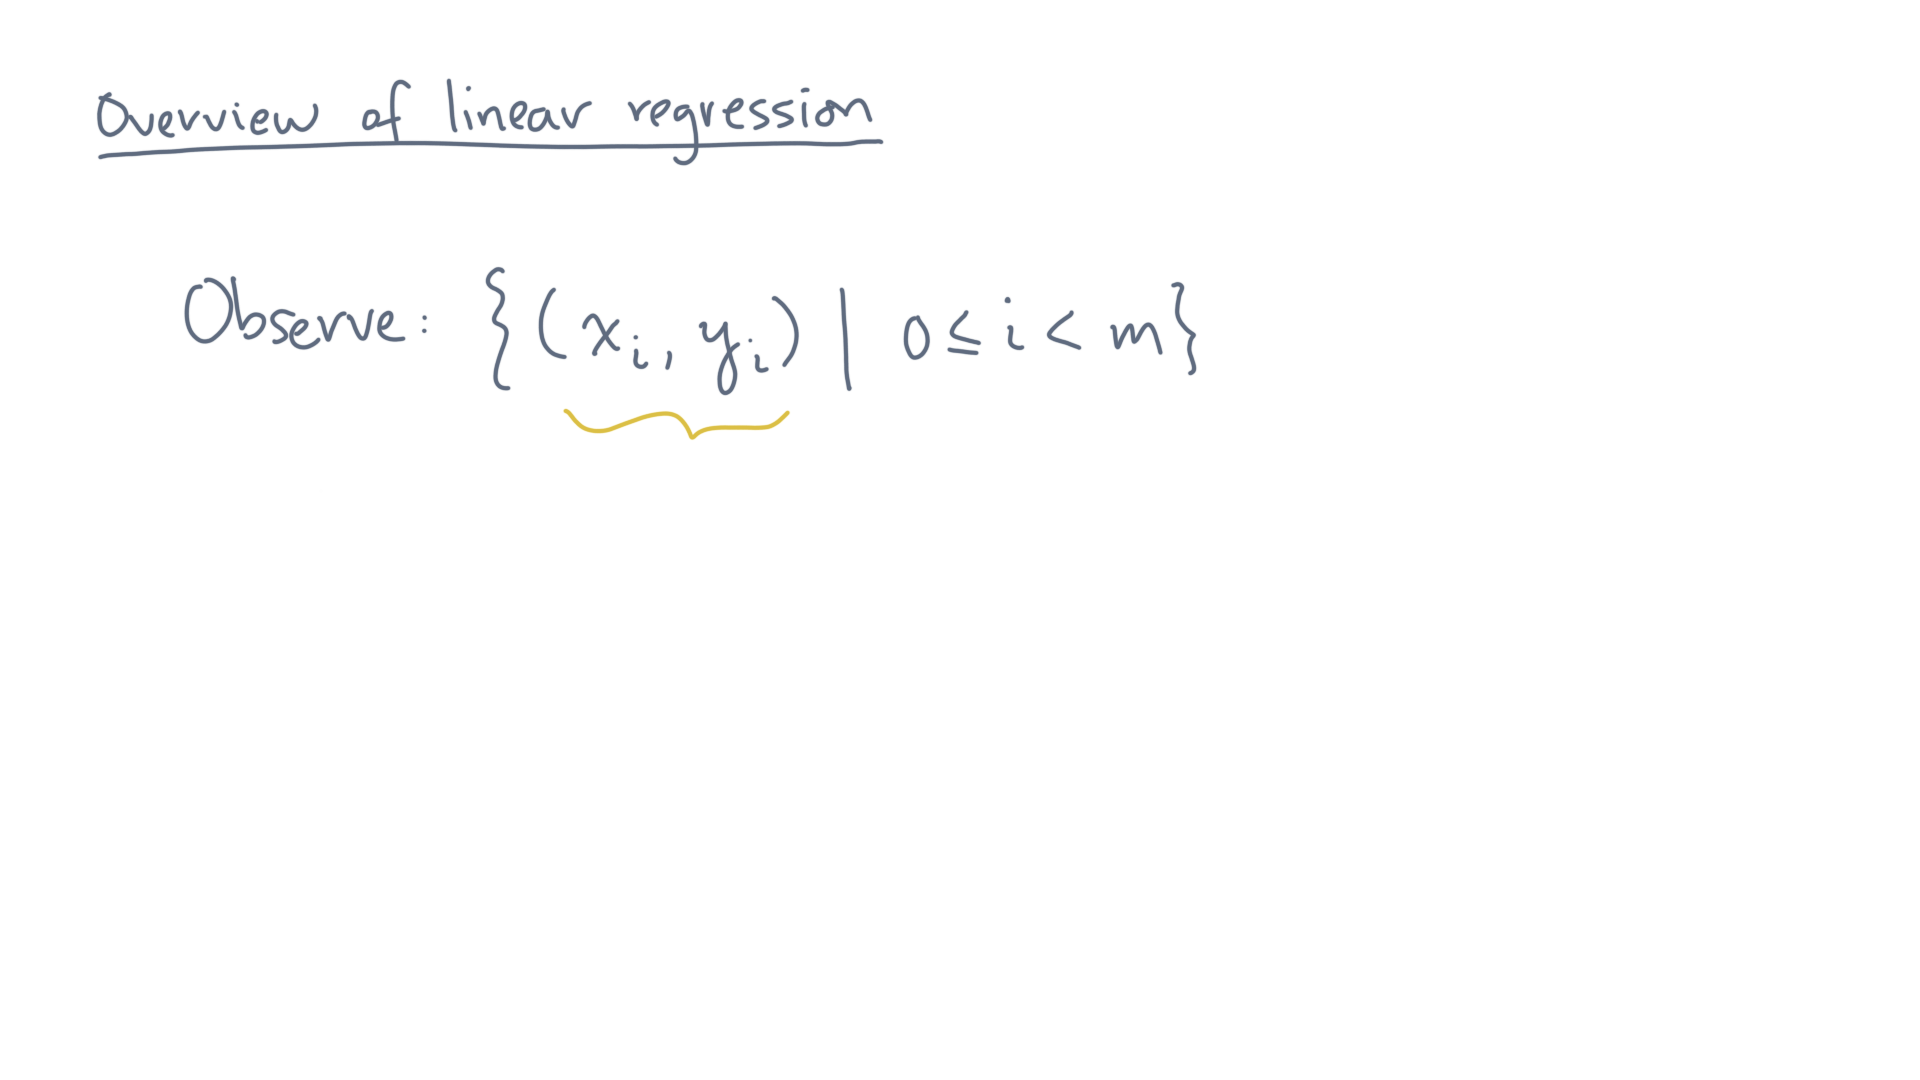 Overview of linear regression
Observe: {(xᵢ, yᵢ) | 0 ≤ i < m}